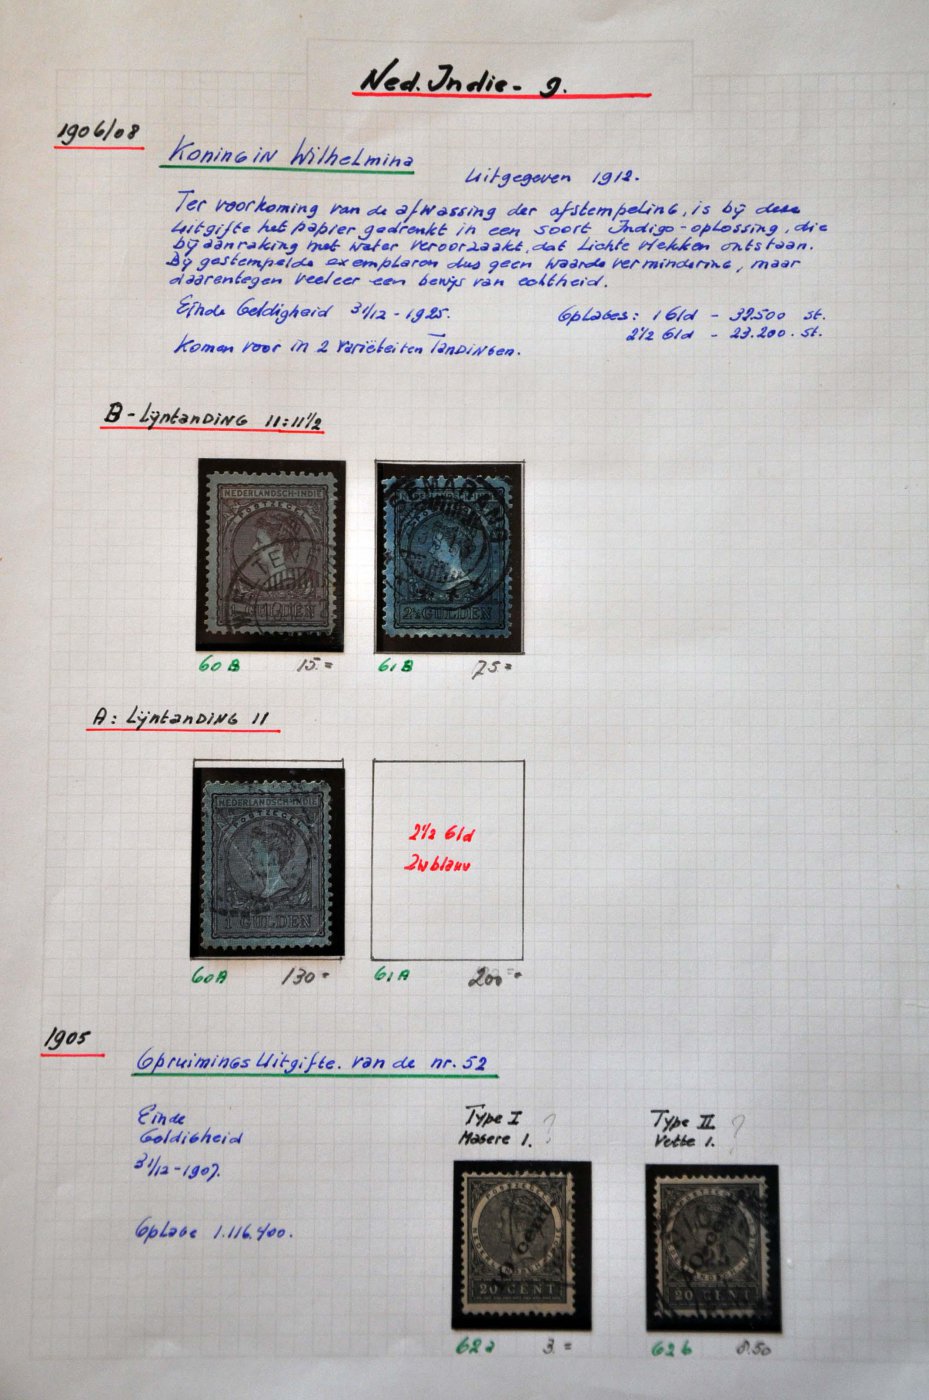 Ned. Indie - 9.
1906/08
Koningin Wilhelmina
Uitgegeven 1912.
Ter voorkoming van de afwassing der afstempeling, is bij deze
uitgifte het papier gedrenkt in een soort Indigo-oplossing, die
bij aanraking met water veroorzaakt, dat lichte vlekken ontstaan.
Bij gestempelde exemplaren dus geen waarde vermindering, maar
daarentegen veeleer een bewijs van echtheid.
Einde Geldigheid 31/12 - 1925.
Oplages: 1 Gld - 32.500 st.
2 1/2 Gld - 23.200. st.
Komen voor in 2 variëteiten Tandingen.
B - Lijntanding 11:11 1/2
NEDERLANDSCH-INDIE
POSTZEGEL
WELTEV
GULDEN
SEMARANG
2½ GULDEN
60 B 15.=
61 B 75=
A: Lijntanding 11
NEDERLANDSCH-INDIE
POSTZEGEL
1 GULDEN
2 1/2 Gld
Zw blauw
60A 130=
61A 200=
1905
Opruimings Uitgifte. van de nr. 52
Einde
Geldigheid
31/12 - 1907.
Oplage 1.116.400.
Type I ?
Magere 1.
Type II ?
Vette 1.
POSTZEGEL
10 cent
20 CENT
POSTZEGEL
10 cent
20 CENT
62a 3.=
62b 8.50